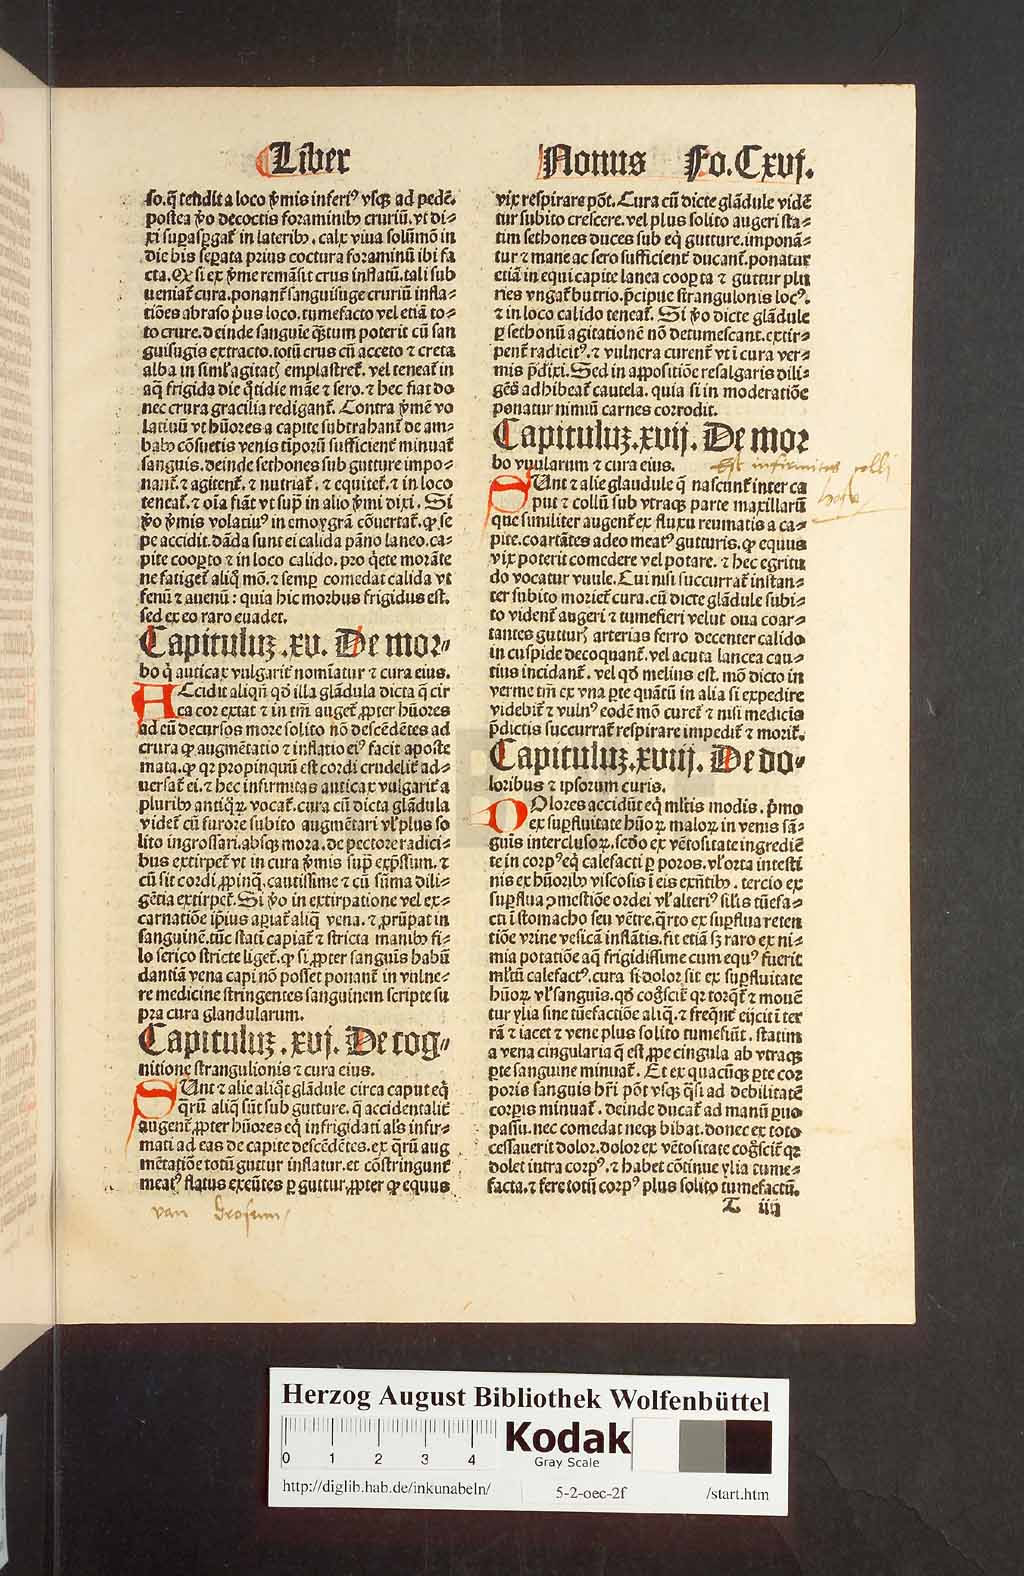 Liber
Nonus Fo.Cxvj.
so.q̄ tendit a loco p̄mis inferiꝰ vsqꝫ ad pedē.
postea ꝟo decoctis foraminibꝰ cruriū.vt di⸗
xi suꝑaspgat᷑ in lateribꝰ.calx viua solūmō in
die bis seꝑata prius coctura foraminū ibi fa
cta.Qꝫ si ex p̄me remāsit crus inflatū.tali sub
ueniat᷑ cura.ponant᷑ sanguisuge cruriū infla⸗
tiōes abraso p̄us loco.tumefacto vel etiā to⸗
to crure.deinde sanguīe q̄ꝫtum poterit cū san
guisugis extracto.totū crus cū acceto ⁊ creta
alba in siml᷑ agitatꝭ emplastret᷑.vel teneat᷑ in
aq̄ frigida die q̄tidie māe ⁊ sero.⁊ hec fiat do
nec crura gracilia redigant᷑. Contra p̄mē vo
latiuū vt hūores a capite subtrahant᷑ de am⸗
babꝰ cōsuetis venis tīporū sufficient᷑ minuat᷑
sanguis.deinde sethones sub gutture impo⸗
nant᷑ ⁊ agitent᷑.⁊ nutriat᷑.⁊ equitet᷑.⁊ in loco
teneat᷑.⁊ oīa fiāt vt sup̄ in alio p̄mi dixi. Si
ꝟo p̄mis volatiuꝰ in emoygrā cōuertat᷑.ꝙ se
pe accidit.dāda sunt ei calida pāno laneo.ca⸗
pite cooꝑto ⁊ in loco calido.pro q̄ete morāte
ne fatiget᷑ aliq̄ mō.⁊ semꝑ comedat calida vt
fenū ⁊ auenū: quia hic morbus frigidus est.
sed ex eo raro euadet.
Capituluꝫ.xv. De mor⸗
bo q̄ auticax vulgarit᷑ nomīatur ⁊ cura eius.
ACcidit aliqn̄ qd̄ illa glādula dicta q̄ cir
ca cor extat ⁊ in tm̄ auget᷑.ꝓpter hūores
ad eū decursos more solito nō descēdētes ad
crura ꝙ augmētatio ⁊ inflatio eiꝰ facit aposte
mata.ꝙ qꝛ propinquū est cordi crudelit᷑ ad⸗
uersat᷑ ei.⁊ hec infirmitas auticax vulgarit᷑ a
pluribꝰ antiq̄ꝝ vocat᷑.cura cū dicta glādula
videt᷑ cū furore subito augmētari vl᷑ plus so
lito ingrossari.absqꝫ mora.de pectore radici⸗
bus extirpet᷑ vt in cura p̄mis sup̄ exp̄ssum.⁊
cū sit cordi ꝓpinq̄.cautissime ⁊ cū sūma dili⸗
gētia extirpet᷑. Si ꝟo in extirpatione vel ex⸗
carnatiōe ip̄ius aꝑiat᷑ aliq̄ vena.⁊ ꝓrūpat in
sanguinē.tūc stati capiat᷑ ⁊ stricta manibꝰ fi⸗
lo serico stricte liget᷑.ꝙ si ꝓpter sanguīs habū
dantiā vena capi nō posset ponant᷑ in vulne⸗
re medicine stringentes sanguinem scripte su
pra cura glandularum.
Capituluꝫ.xvj. De cog⸗
nitione strangulionis ⁊ cura eius.
SUnt ⁊ alie aliq̄t glādule circa caput eq̄
q̄rū aliq̄ sūt sub gutture.q̄ accidentalit᷑
augent᷑.ꝓpter hūores eq̄ infrigidati als̄ infir⸗
mati ad eas de capite descēdētes.ex q̄rū aug
mētatiōe totū guttur inflatur.et cōstringunt᷑
meatꝰ flatus exeūtes ꝑ guttur.ꝓpter ꝙ equus
van Drosem
vix respirare pōt. Cura cū dicte glādule vidē
tur subito crescere.vel plus solito augeri sta⸗
tim sethones duces sub eq̄ gutture.imponā⸗
tur ⁊ mane ac sero sufficient᷑ ducant᷑.ponatur
etiā in equi capite lanea cooꝑta ⁊ guttur plu
ries vngat᷑ butrio.p̄cipue strangulonis locꝰ.
⁊ in loco calido teneat᷑. Si ꝟo dicte glādule
ꝑ sethonū agitationē nō detumescant.extir⸗
pent᷑ radicitꝰ.⁊ vulnera curent᷑ vt i cura ver⸗
mis p̄dixi. Sed in appositiōe resalgaris dili⸗
gēs adhibeat᷑ cautela.quia si in moderatiōe
ponatur nimiū carnes corrodit.
Capituluꝫ.xvij. De mor
bo vuularum ⁊ cura eius.
Est infirmitas colli
SUnt ⁊ alie glaudule q̄ nascunt᷑ inter ca
put ⁊ collū sub vtraqꝫ parte maxillarū
que similiter augent᷑ ex fluxu reumatis a ca⸗
pite.coartātes adeo meatꝰ gutturis.ꝙ equus
vix poterit comedere vel potare.⁊ hec egritu
do vocatur vuule. Cui nisi succurrat᷑ instan⸗
ter subito moriet᷑ cura.cū dicte glādule subi⸗
to vident᷑ augeri ⁊ tumefieri velut oua coar⸗
tantes gutturꝭ arterias ferro decenter calido
in cuspide decoquant᷑.vel acuta lancea cau⸗
tius incidant᷑.vel qd̄ melius est.mō dicto in
verme tm̄ ex vna ꝑte quātū in alia si expedire
videbit᷑ ⁊ vulnꝰ eodē mō curet᷑ ⁊ nisi medicis
p̄dictis succurrat᷑ respirare impedit᷑ ⁊ morit᷑.
Capituluꝫ.xviij. De do⸗
loribus ⁊ ipsorum curis.
DOlores accidūt eq̄ ml̄tis modis.p̄mo
ex suꝑfluitate hūoꝝ maloꝝ in venis sā⸗
guis interclusoꝝ.scd̄o ex vētositate ingrediē
te in corpꝰ eq̄ calefacti ꝑ poros.vl᷑ orta intesti
nis ex hūoribꝰ viscosis ī eis exn̄tibꝰ.tercio ex
suꝑflua ꝯmestiōe ordei vl᷑ alteriꝰ sil̄is tūefa⸗
cti ī stomacho seu vētre.q̄rto ex suꝑflua reten
tiōe vrine vesicā inflātis.fit etiā sꝫ raro ex ni⸗
mia potatiōe aq̄ frigidissime cum equꝰ fuerit
ml̄tū calefactꝰ.cura si dolor sit ex suꝑfluitate
hūoꝝ vl᷑ sanguīs.qd̄ cog̃scit᷑ qꝛ torq̄t᷑ ⁊ mouē
tur ylia sine tūefactiōe aliq̄.⁊ freq̄nt᷑ eijcit ī ter
rā ⁊ iacet ⁊ vene plus solito tumefiūt.statim
a vena cingularia q̄ est ꝓpe cingula ab vtraqꝫ
ꝑte sanguine minuat᷑. Et ex quacūqꝫ ꝑte cor
poris sanguis hr̄i pōt vsqꝫ q̄si ad debilitatē
corꝑis minuat᷑.deinde ducat᷑ ad manū ꝑuo
passū.nec comedat neqꝫ bibat.donec ex toto
cessauerit dolor.dolor ex vētositate cog̃scit᷑ qꝛ
dolet intra corpꝰ.⁊ habet cōtinue ylia tume⸗
facta.⁊ fere totū corpꝰ plus solito tumefactū.
T iiij
Herzog August Bibliothek Wolfenbüttel
0 1 2 3 4
Kodak
Gray Scale
http://diglib.hab.de/inkunabeln/ 5-2-oec-2f /start.htm